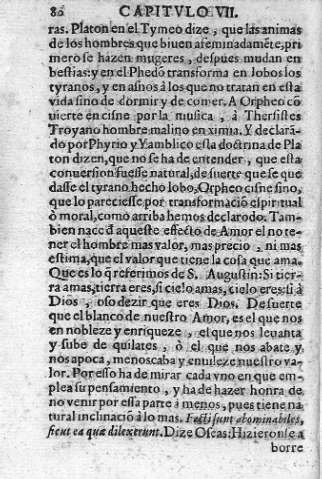 80 CAPITVLO VII.
ras. Platon en el Tymeo dize, que las animas
de los hombres que biuen afeminadamẽte, pri
mero se hazen mugeres, despues mudan en
bestias: y en el Phedõ transforma en lobos los
tyranos, y en asnos à los que no tratan en esta
vida sino de dormir y de comer. A Orpheo cõ
uierte en cisne por la musica, à Thersistes
Troyano hombre malino en ximia. Y declarã-
do porPhyrio y Yamblico esta doctrina de Pla
ton dizen, que no se ha de entender, que esta
conuersion fuesse natural, de suerte que se que
dasse el tyrano hecho lobo, Orpheo cisne sino,
que lo pareciesse por transformaciõ espiritual
ò moral, como arriba hemos declarodo. Tam-
bien nace đ aqueste effecto de Amor el no te-
ner el hombre mas valor, mas precio, ni mas
estima, que el valor que tiene la cosa que ama.
Que es lo q̃ referimos de S. Augustin: Si tier-
ra amas, tierra eres, si cielo amas, cielo eres: si à
Dios, oso dezir que eres Dios. De suerte
que el blanco de nuestro Amor, es el que nos
en nobleze y enriqueze, et que nos leuanta
y sube de quilates, ò el que nos abate y
nos apoca, menoscaba y enuileze nuestro va-
lor. Por esso ha de mirar cada vno en que em-
plea su pensamiento, y ha de hazer honra de
no venir por essa parte à menos, pues tiene na
tural inclinaciõ à lo mas. Facti sunt abominabiles,
sicut ea quæ dilexerunt. Dize Oseas: Hizieronse a
borre